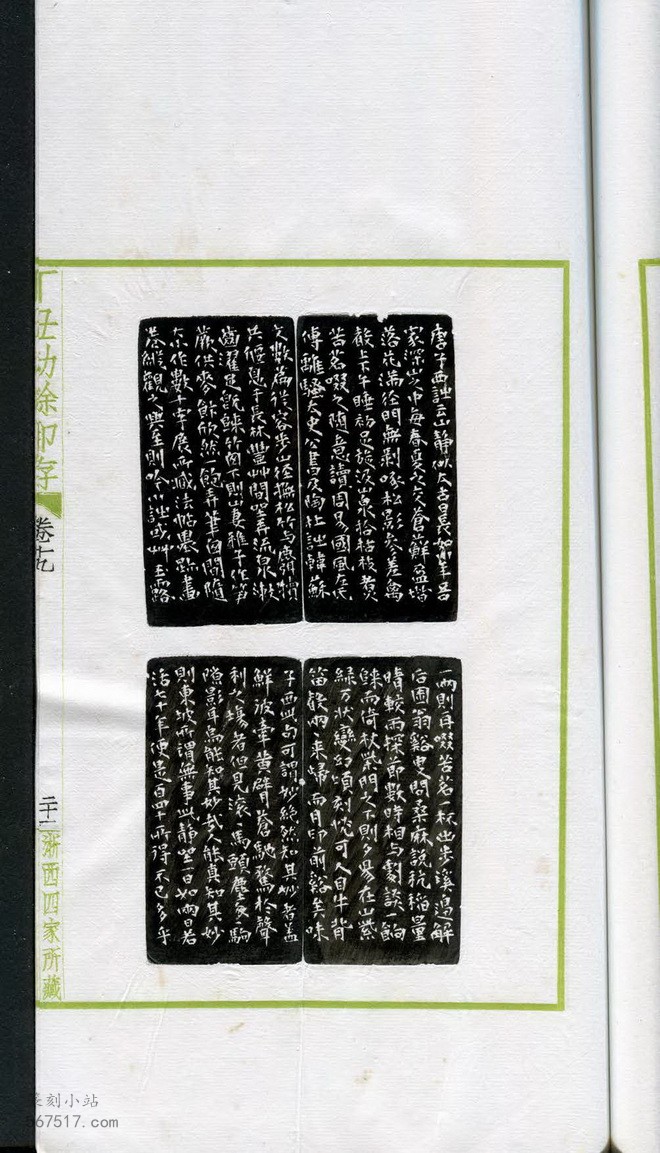 唐子西詩云山靜似太古日長如小年吾
家深山之中每春夏之交蒼蘚盈堦
落花滿徑門無剝啄松影參差禽
聲上下午睡初足旋汲山泉拾松枝煮
苦茗啜之隨意讀周易國風左氏
傳離騷太史公書及陶杜詩韓蘇
文數篇從容步山徑撫松竹与麛犢
共偃息于長林豐艸間坐弄流泉漱
齒濯足既歸竹窗下則山妻稚子作筍
蕨供麥飯欣然一飽弄筆窗間隨
大小作數十字展所藏法帖墨跡畫
卷縱觀之興至則吟小詩或艸玉露
一兩則再啜苦茗一杯出步溪邊解
后園翁谿叟問桑麻說秔稻量
晴較雨探節數時相与劇談一餉
歸而倚杖柴門之下則夕陽在山紫
綠万狀變幻頃刻恍可人目牛背
笛聲兩兩來歸而月印前谿矣味
子西此句可謂妙絕然知其妙者蓋
鮮彼牽黃臂蒼馳騖於聲
利之場者但見滾滾馬頭塵匆匆駒
隙影耳烏能知其妙哉人能真知其妙
則東坡所謂無事此靜坐一日如兩日若
活七十年便是百四十所得不已多乎
丁丑劫餘印存
卷十九
二十二
浙西四家所藏
篆刻小站
567517.com